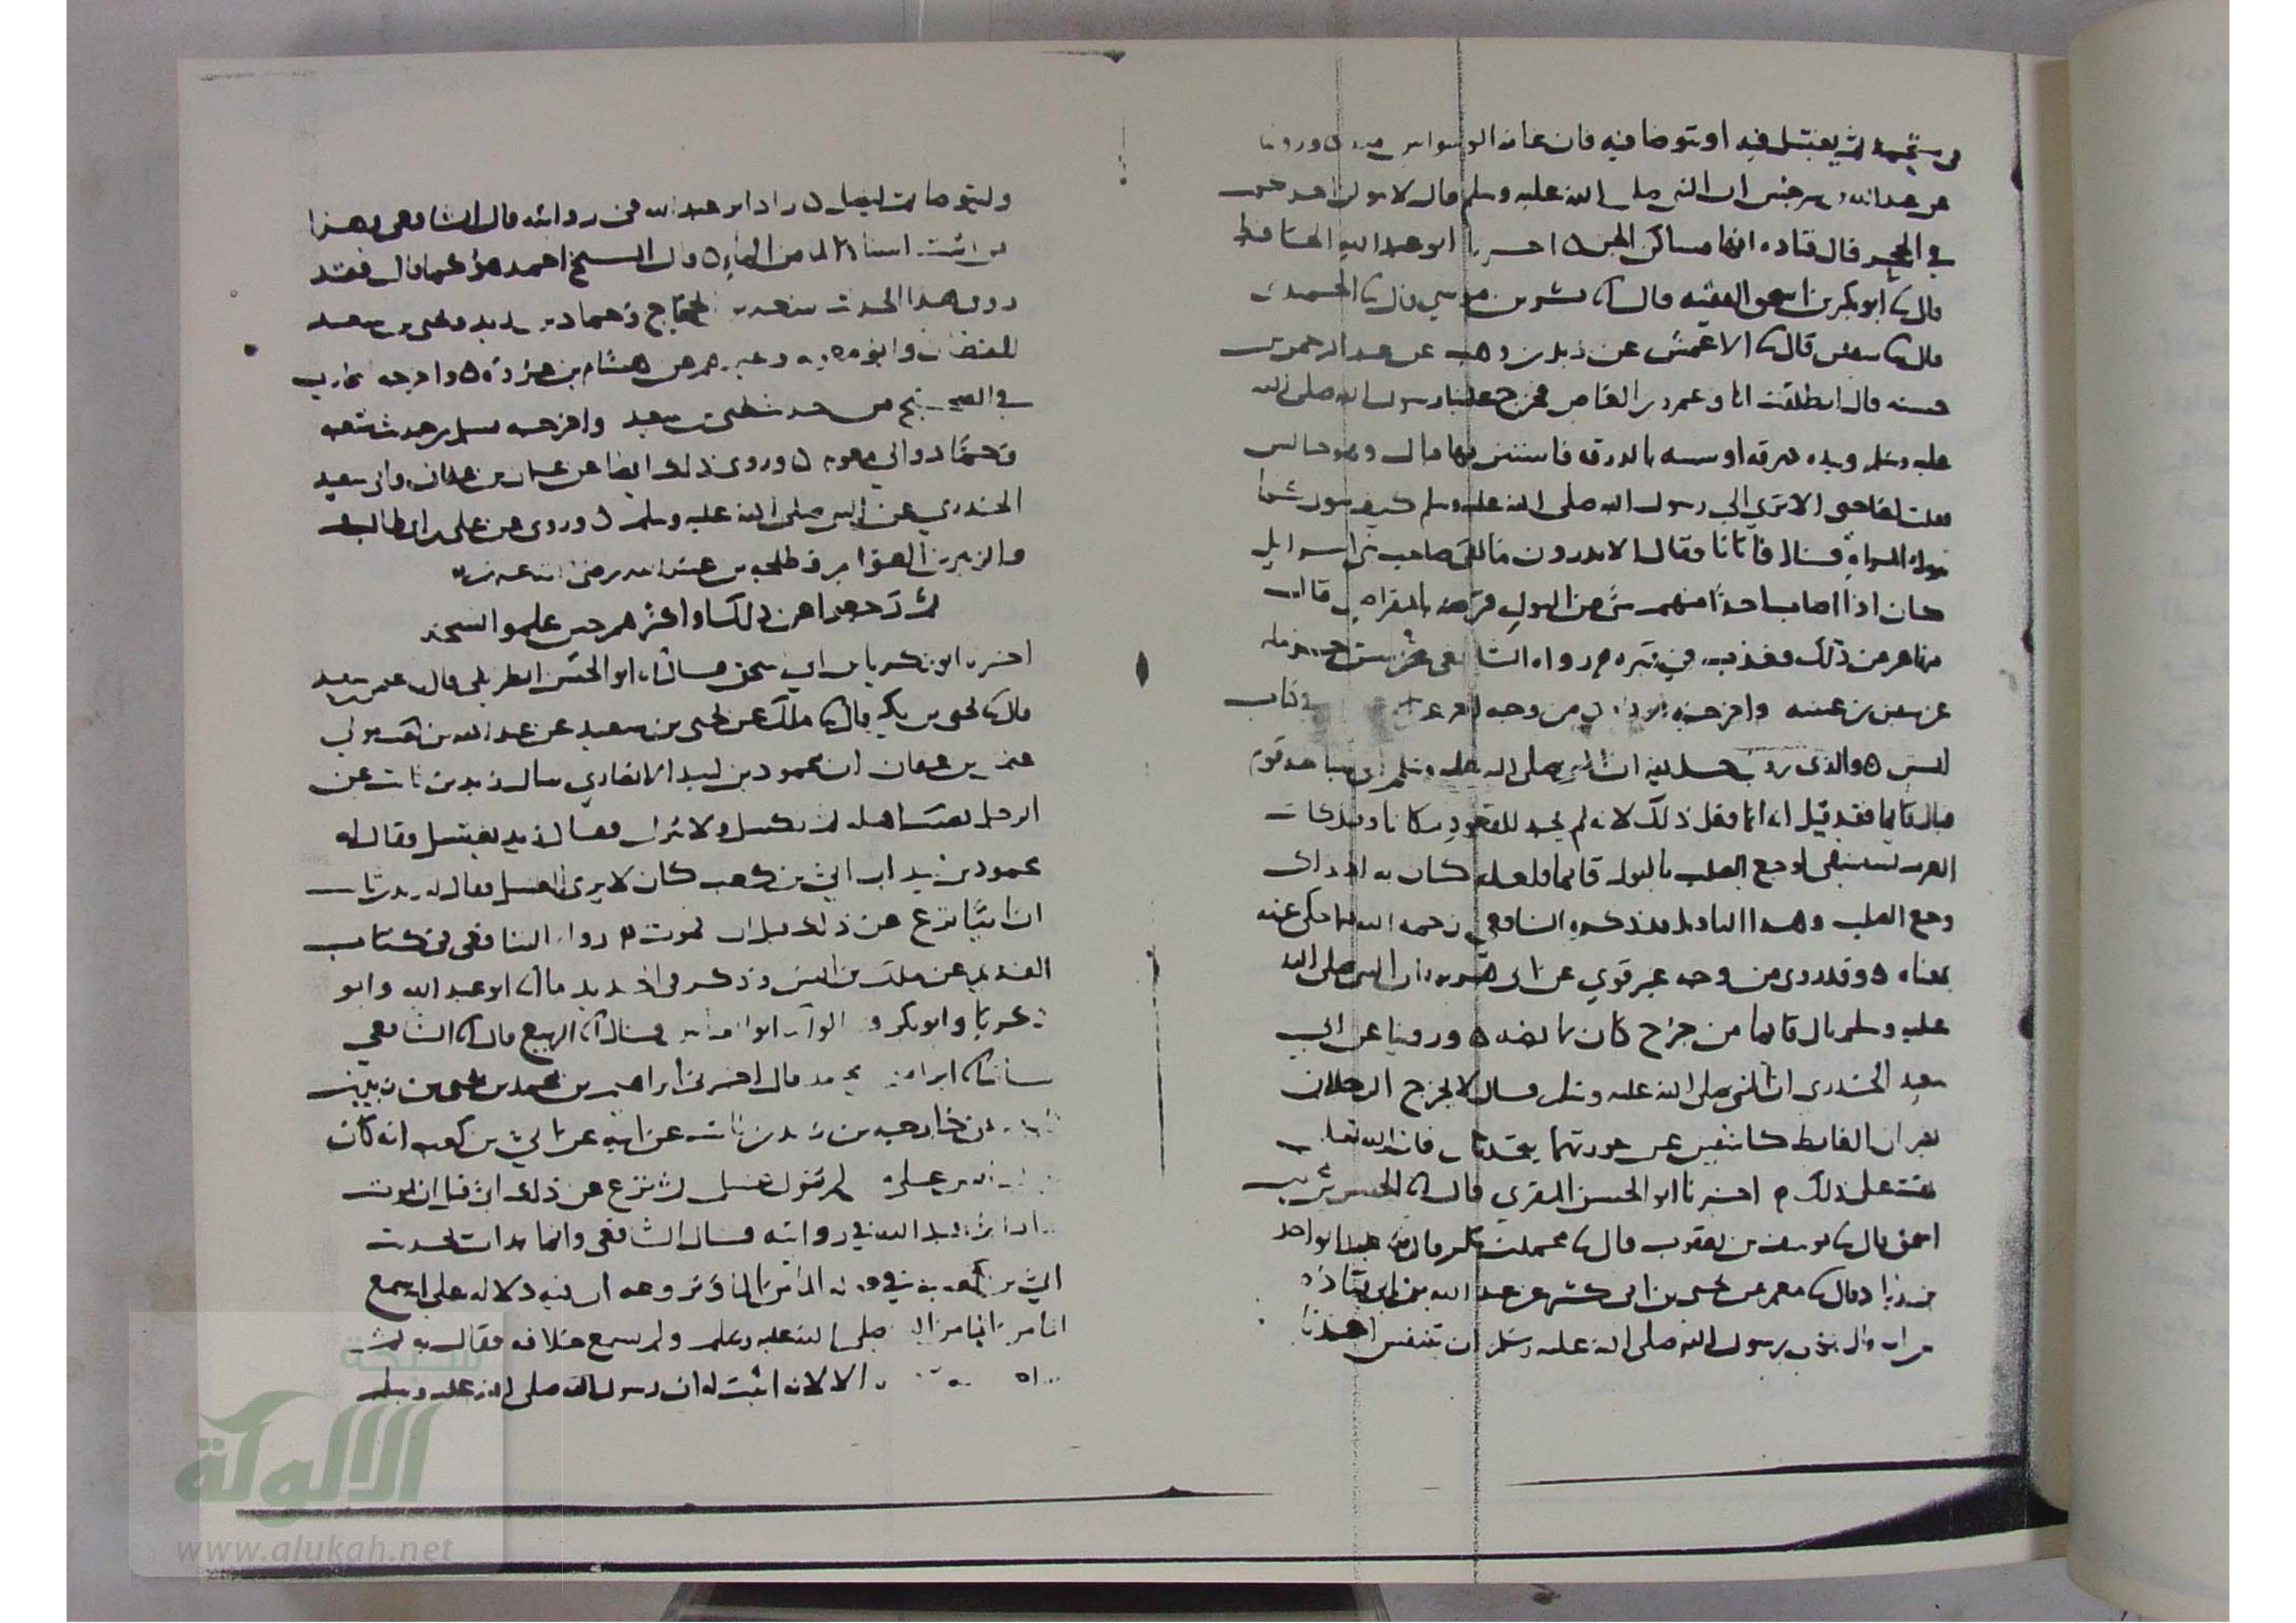 في مستحمه ثم يغتسل فيه او يتوضا فيه فان عامة الوسواس منه ٥ وروينا
عن عبدالله بن سرجس ان النبي صلى الله عليه وسلم قال لا يبولن احدكم
في الجحر قال قتاده انها مساكن الجن ٥ اخبرنا ابو عبدالله الحافظ
قال نا ابو بكر بن اسحق الفقيه قال نا بشر بن موسي قال نا الحميدي
قال نا سفين قال نا الاعمش عن زيد بن وهب عن عبد الرحمن بن
حسنه قال انطلقت انا وعمرو بن العاص فخرج علينا رسول الله صلى الله
عليه وسلم وبيده درقه او شبيه بالدرقه فاستتر بها فبال وهو جالس
فقلت لصاحبي الا تري الي رسول الله صلى الله عليه وسلم كيف يبول كما
تبول المراة قال فاتانا فقال الا تدرون ما لقي صاحب بني اسرايل
كان اذا اصاب احدا منهم شي من البول قرضه بالمقراض قال
فنهاهم عن ذلك فعذب في قبره م رواه الشافعي في سنن حرمله
عن سفين بن عيينه واخرجه من وجه اخر
ليس ٥ والذي روي حذيفه ان النبي صلى الله عليه وسلم اتي سباطه قوم
فبال قايما فقد قيل انه انما فعل ذلك لانه لم يجد للقعود مكانا وقيل كانت
العرب تستشفي لوجع الصلب بالبول قايما فلعله كان به اذ ذاك
وجع الصلب وهذا التاويل قد ذكره الشافعي رحمه الله فيما حكي عنه
بمعناه ٥ وقد روي من وجه غير قوي عن ابي هريره ان النبي صلى الله
عليه وسلم بال قايما من جرح كان بمابضه ٥ وروينا عن ابي
سعيد الخدري ان النبي صلى الله عليه وسلم قال لا يخرج الرجلان
يضربان الغايط كاشفين عن عورتهما يتحدثان فان الله تعالي
يمقت على ذلك م اخبرنا ابو الحسن المقري قال نا الحسن بن محمد بن
اسحق قال نا يوسف بن يعقوب قال نا محمد بن ابي بكر قال نا عبد الواحد
بن زياد قال نا معمر عن يحيى بن ابي كثير عن عبد الله بن ابي قتاده
عن ابيه قال نهي رسول الله صلى الله عليه وسلم ان يتنفس احدنا
وليتوضا ثم ليصل ٥ زاد ابو عبد الله في روايته قال الشافعي وهذا
من اثبت اسناد الما من الماء ٥ قال الشيخ احمد هو كما قال فقد
روي هذا الحديث شعبه بن الحجاج وحماد بن زيد ويحيى بن سعيد
القطان وابو معويه وغيرهم عن هشام بن عروة ٥ واخرجه البخاري
في الصحيح من حديث يحيى بن سعيد واخرجه مسلم من حديث شعبه
وحماد وابي معويه ٥ وروي ذلك ايضا عن عثمان بن عفان وابي سعيد
الخدري عن النبي صلى الله عليه وسلم ٥ وروي عن علي بن ابي طالب
والزبير بن العوام وطلحه بن عبيد الله رضي الله عنهم
ثم رجعوا عن ذلك او اكثرهم حين علموا النسخ
اخبرنا ابو زكريا بن ابي اسحق قال نا ابو الحسن الطرايفي قال نا عثمن بن سعيد
قال نا يحيى بن بكير قال نا ملك عن يحيى بن سعيد عن عبد الله بن كعب مولي
عثمن بن عفان ان محمود بن لبيد الانصاري سال زيد بن ثابت عن
الرجل يصيب اهله ثم يكسل ولا ينزل فقال زيد يغتسل فقال له
محمود بن لبيد ان ابي بن كعب كان لا يري الغسل فقال له زيد بن ثابت
ان ابيا نزع عن ذلك قبل ان يموت م رواه الشافعي في كتاب
القديم عن ملك بن انس وذكر في الجديد ما نا ابو عبد الله وابو
زكريا وابو بكر قالوا نا ابو العباس قال نا الربيع قال نا الشافعي
قال نا ابراهيم بن محمد قال اخبرني ابراهيم بن محمد بن يحيى بن زيد بن
ثابت عن خارجه بن زيد بن ثابت عن ابيه عن ابي بن كعب انه كان
يقول ليس على من لم ينزل غسل ثم نزع عن ذلك ابي قبل ان يموت
زاد ابو عبد الله في روايته قال الشافعي وانما بدات بحديث
ابي بن كعب في قوله الما من الما ونزوعه ان فيه دلاله على انه سمع
الما من الما من النبي صلى الله عليه وسلم ولم يسمع خلافه فقال به ثم
الا لانه اثبت له ان رسول الله صلى الله عليه وسلم
شبكة
الألوكة
www.alukah.net